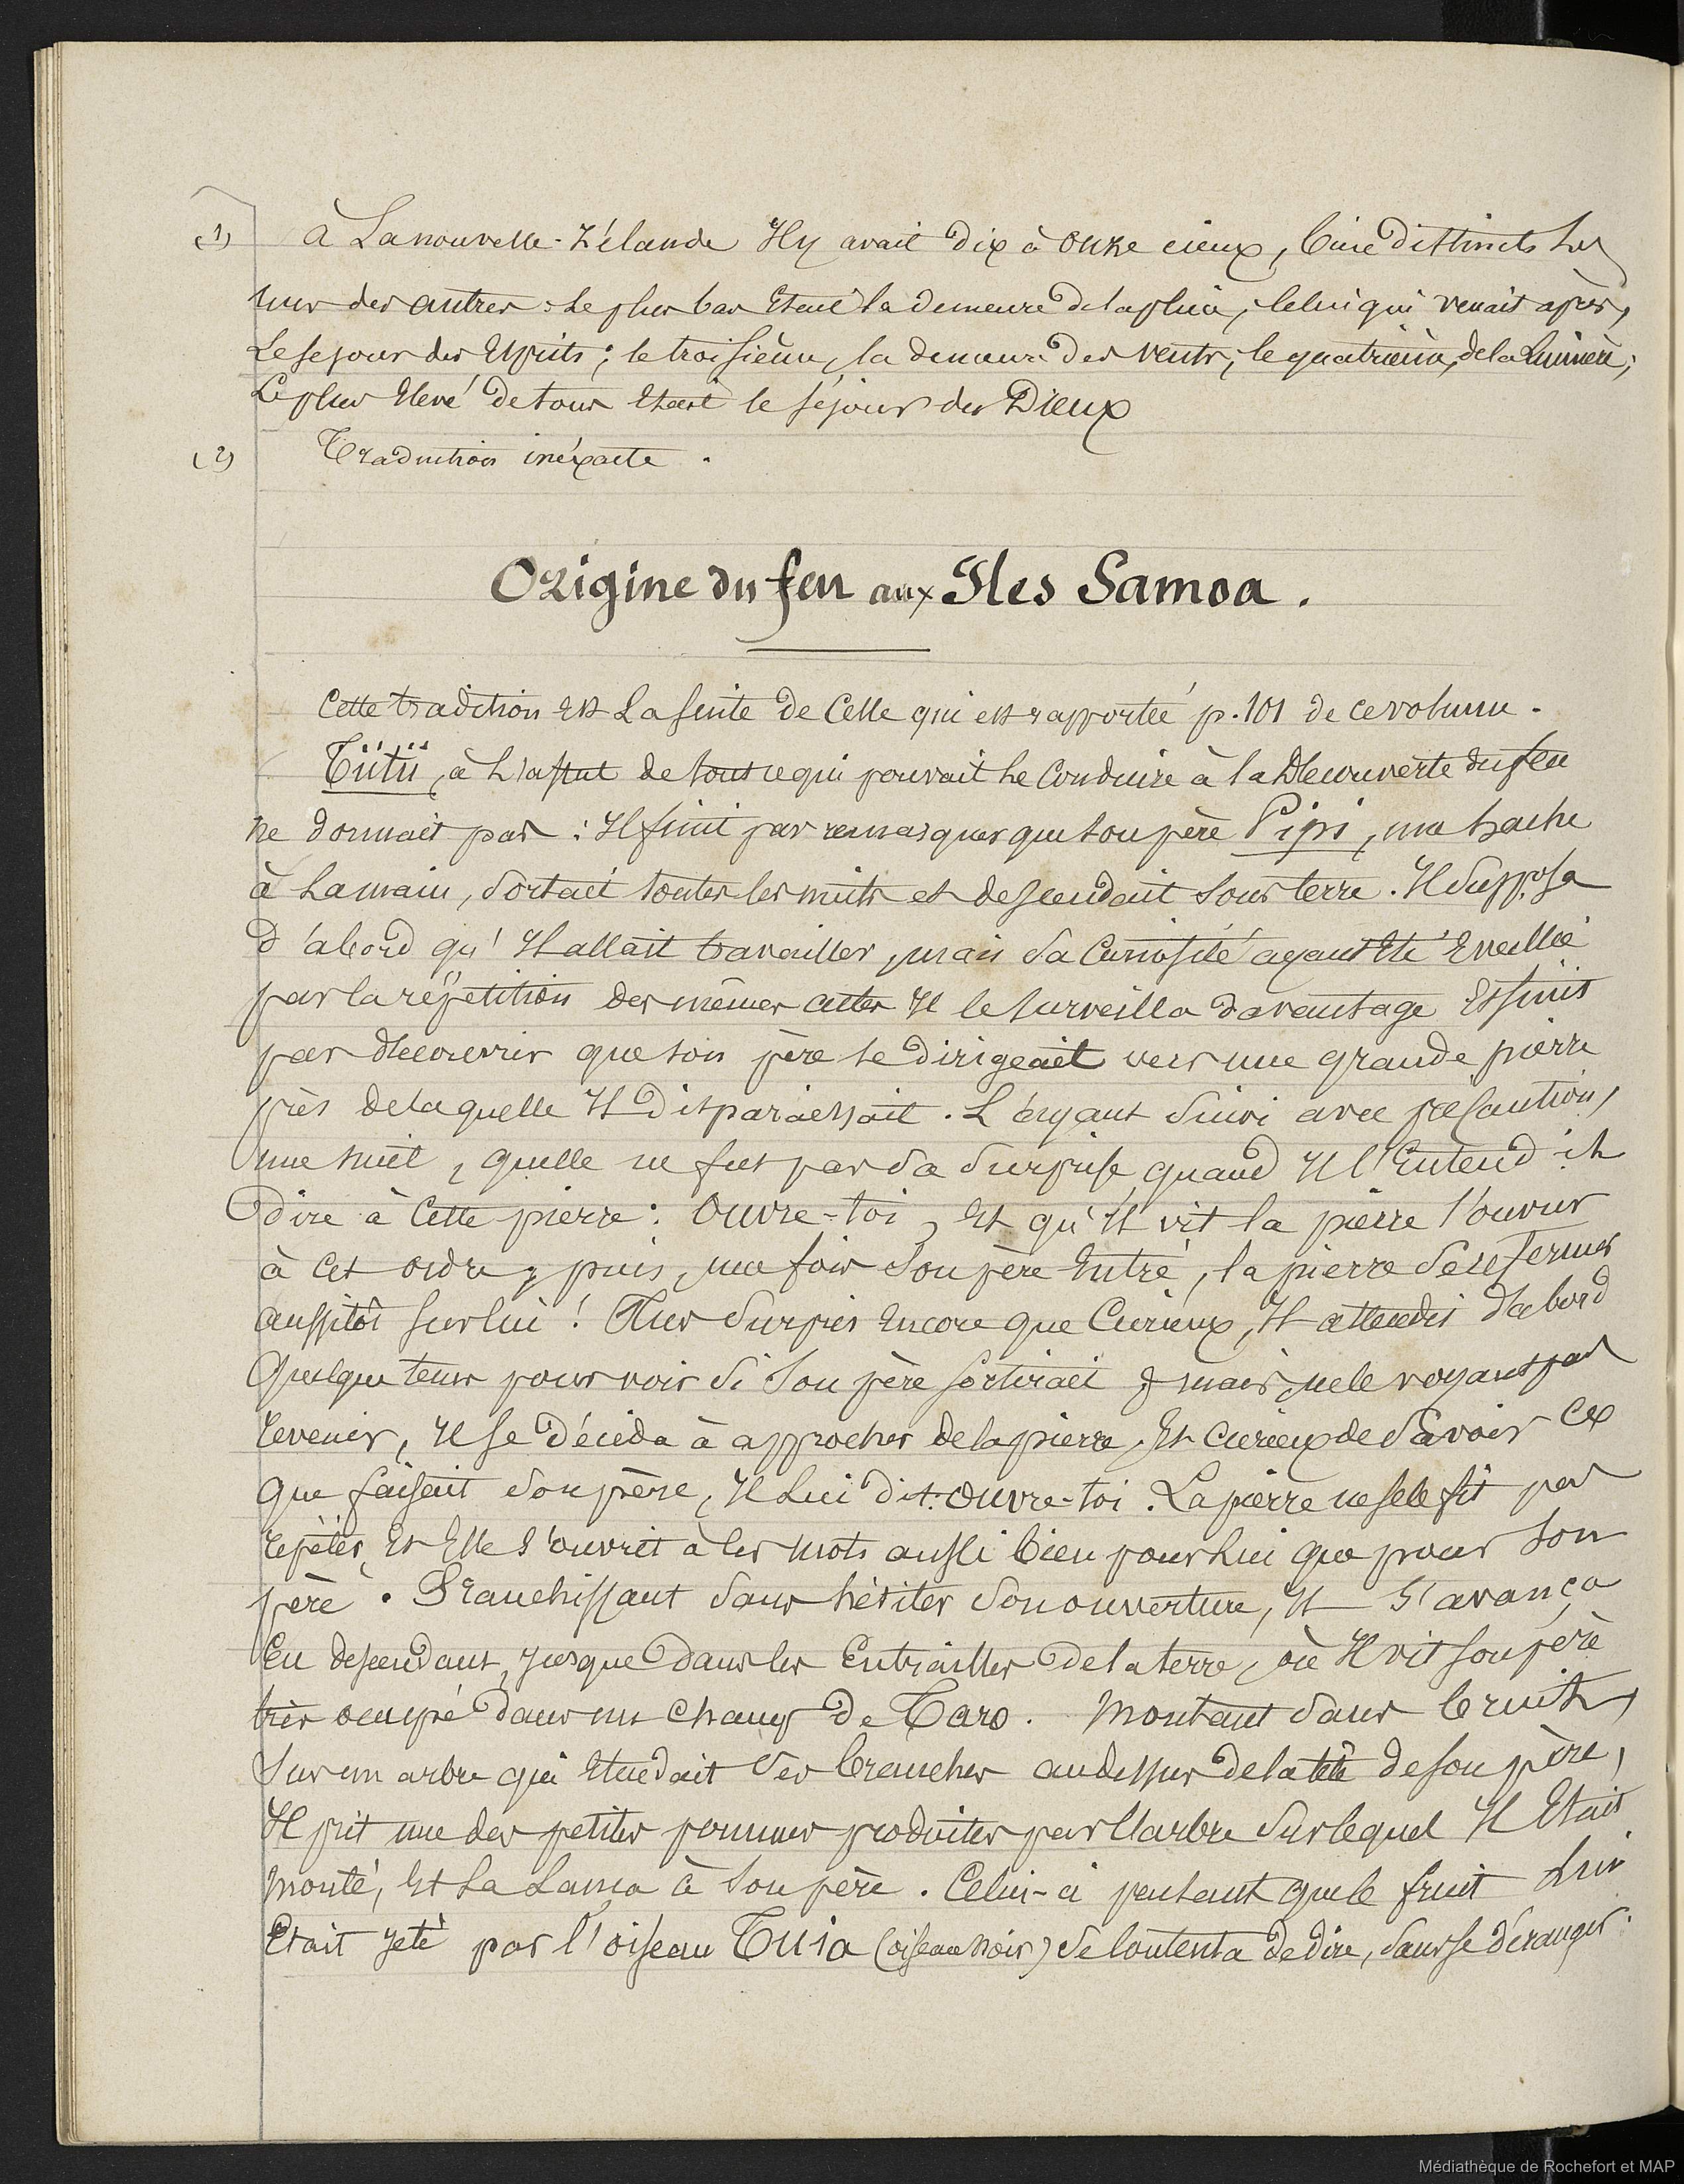 (1) à La nouvelle-Zélande Il y avait dix à onze cieux, bien distincts les
uns des autres : Le plus bas Etait la demeure de la pluie, celui qui venait après,
Le sejour des Esprits ; le troisième, la demeure des vents ; le quatrième, de la Lumière ;
Le plus Elevé de tous Etait le séjour des Dieux
(2) Traduction inéxacte .
Origine du feu aux Iles Samoa .
Cette tradition Est La suite de Celle qui est rapportée p. 101 de ce volume .
Tiïtiï, à L'affut de tout ce qui pouvait Le Conduire à la Découverte du feu
ne dormait pas : Il finit par remarquer que son père Pipi, une hache
à La main, sortait toutes les nuits et descendait sous terre . Il supposa
d'abord qu'Il allait travailler, mais sa Curiosité ayant Eté Eveillée
par la répétition des mêmes actes Il le surveilla davantage Et finit
par découvrir que son père se dirigeait vers une grande pierre
près de laquelle Il disparaissait . L'ayant suivi avec precaution,
une nuit, quelle ne fut pas sa surprise quand Il l'Entendit
dire à Cette pierre : Ouvre-toi, Et qu'Il vit la pierre s'ouvrir
à cet ordre, puis, une fois son père Entré, la pierre se refermer
aussitôt sur lui ! Plus surpris Encore que Curieux, Il attendit d'abord
Quelque tems pour voir si son père sortirait ; mais ne le voyant pas
revenir, Il se décida à approcher de la pierre, Et Curieux de savoir Ce
que faisait son père, Il Lui dit : Ouvre-toi . La pierre ne se le fit pas
répéter, Et Elle s'ouvrit à ces mots aussi bien pour Lui que pour son
père . Franchissant sans hésiter son ouverture, Il s'avança
En descendant, jusque dans les Entrailles de la terre, où Il vit son père
très occupé dans un champ de Taro . Montant sans bruit,
sur un arbre qui Etendait ses branches au dessus de la tête de son père,
Il prit une des petites pommes produites par l'arbre sur lequel Il Etait
monté, Et La Lança à son père . Celui-ci pensant que le fruit Lui
Etait jeté par l'oiseau Tuia (oiseau noir) se contenta de dire, sans se déranger :
Médiathèque de Rochefort et MAP